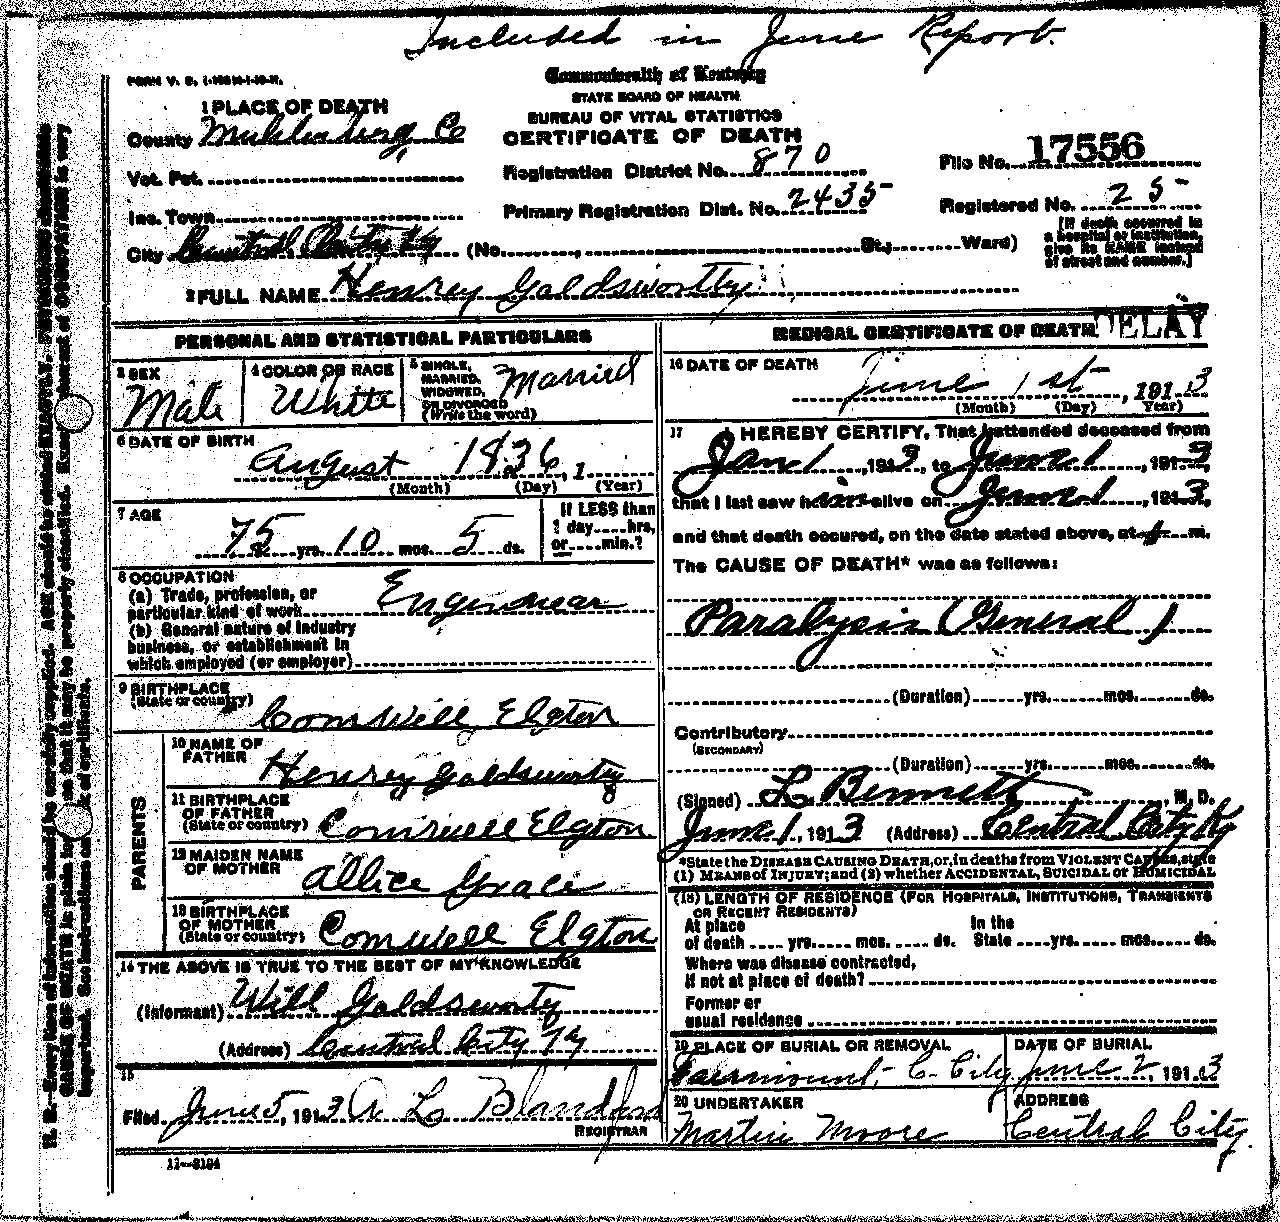 Included in June Report.
Commonwealth of Kentucky
STATE BOARD OF HEALTH
BUREAU OF VITAL STATISTICS
CERTIFICATE OF DEATH
1 PLACE OF DEATH
County Muhlenberg Co
Vot. Pct.
Inc. Town
City Central City Ky (No. St.; Ward)
Registration District No. 870
Primary Registration Dist. No. 2435
File No. 17556
Registered No. 25
[If death occurred in
a hospital or institution,
give its NAME instead
of street and number.]
2 FULL NAME Henrey Goldsworthy
PERSONAL AND STATISTICAL PARTICULARS
3 SEX
Male
4 COLOR OR RACE
White
5 SINGLE,
MARRIED,
WIDOWED,
OR DIVORCED
(Write the word)
Married
6 DATE OF BIRTH
August 1836, 1
(Month) (Day) (Year)
7 AGE
75 yrs. 10 mos. 5 ds.
If LESS than
1 day....hrs,
or....min.?
8 OCCUPATION
(a) Trade, profession, or
particular kind of work Enginnear
(b) General nature of industry
business, or establishment in
which employed (or employer)
9 BIRTHPLACE
(State or country)
Cornwill Elgton
PARENTS
10 NAME OF
FATHER
Henrey Goldsworty
11 BIRTHPLACE
OF FATHER
(State or country) Cornwell Elgton
12 MAIDEN NAME
OF MOTHER
Allice Grace
13 BIRTHPLACE
OF MOTHER
(State or country) Cornwell Elgton
14 THE ABOVE IS TRUE TO THE BEST OF MY KNOWLEDGE
(Informant) Will Goldsworty
(Address) Central City Ky
15
Filed June 5, 1913 A L Blandford
REGISTRAR
11-3184
MEDICAL CERTIFICATE OF DEATH
DELAY
16 DATE OF DEATH
June 1st, 1913
(Month) (Day) (Year)
17 I HEREBY CERTIFY, That I attended deceased from
Jan 1, 1913, to June 1, 1913,
that I last saw him alive on June 1, 1913,
and that death occured, on the date stated above, at m.
The CAUSE OF DEATH* was as follows:
Paralysis (General)
(Duration) yrs. mos. ds.
Contributory
(SECONDARY)
(Duration) yrs. mos. ds.
(Signed) L Bennett, M. D.
June 1, 1913 (Address) Central City Ky
*State the DISEASE CAUSING DEATH, or, in deaths from VIOLENT CAUSES, state
(1) MEANS of INJURY; and (2) whether ACCIDENTAL, SUICIDAL or HOMICIDAL
(18) LENGTH OF RESIDENCE (FOR HOSPITALS, INSTITUTIONS, TRANSIENTS
OR RECENT RESIDENTS)
At place In the
of death .... yrs. mos. .... ds. State ....yrs. mos. ds.
Where was disease contracted,
If not at place of death?
Former or
usual residence
19 PLACE OF BURIAL OR REMOVAL
Fairmount, C. City
DATE OF BURIAL
June 2, 1913
20 UNDERTAKER
Martin Moore
ADDRESS
Central City